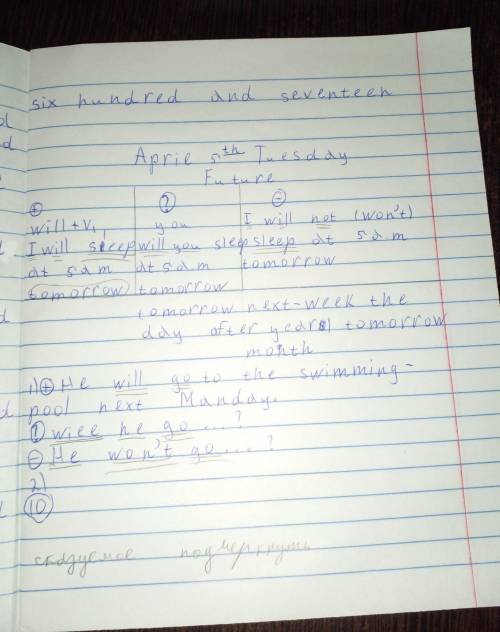 six hundred and seventeen
Aprie 5th Tuesday
Future
+ ? -
will + V1 you I will not (won't)
I will sleep will you sleep sleep at 5 a m
at 5 a m at 5 a m tomorrow
tomorrow tomorrow
tomorrow next-week the
day after year tomorrow
month
1) + He will go to the swimming-
pool next Manday.
? wiee he go ... ?
- He won't go ... ?
2)
10
сказуемое подчеркнуть